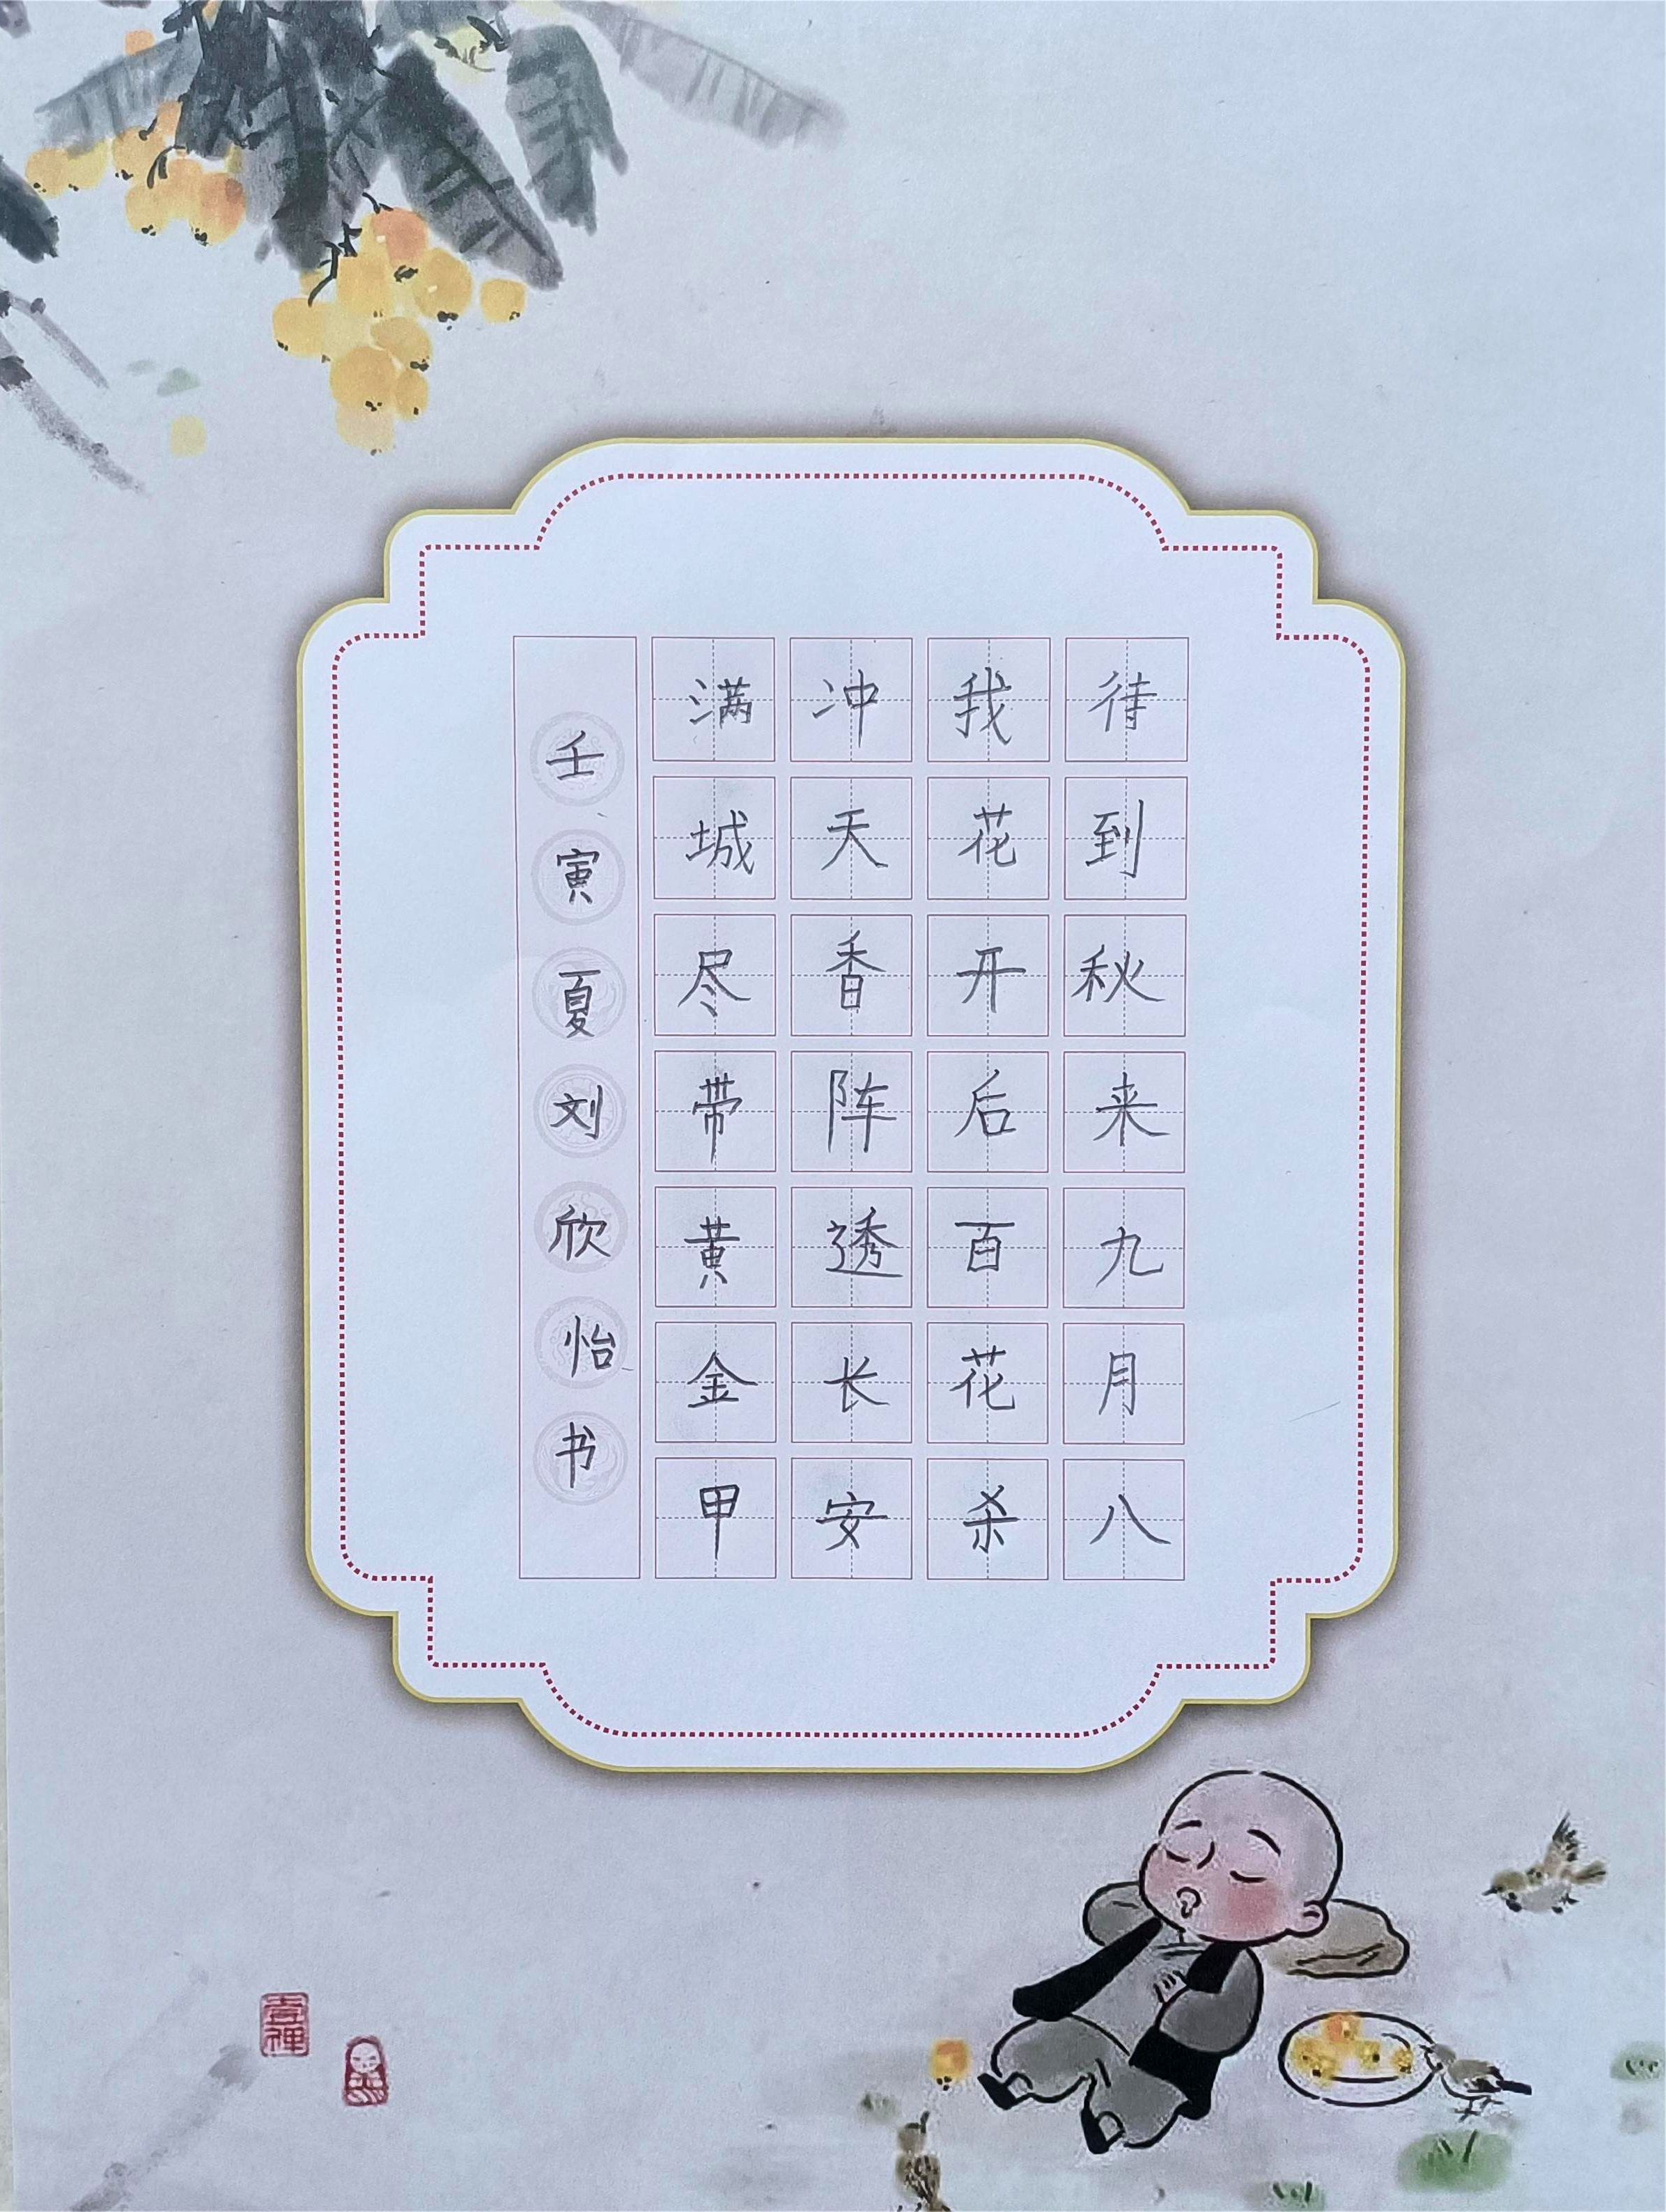 待到秋来九月八
我花开后百花杀
冲天香阵透长安
满城尽带黄金甲
壬寅夏刘欣怡书
喜禅